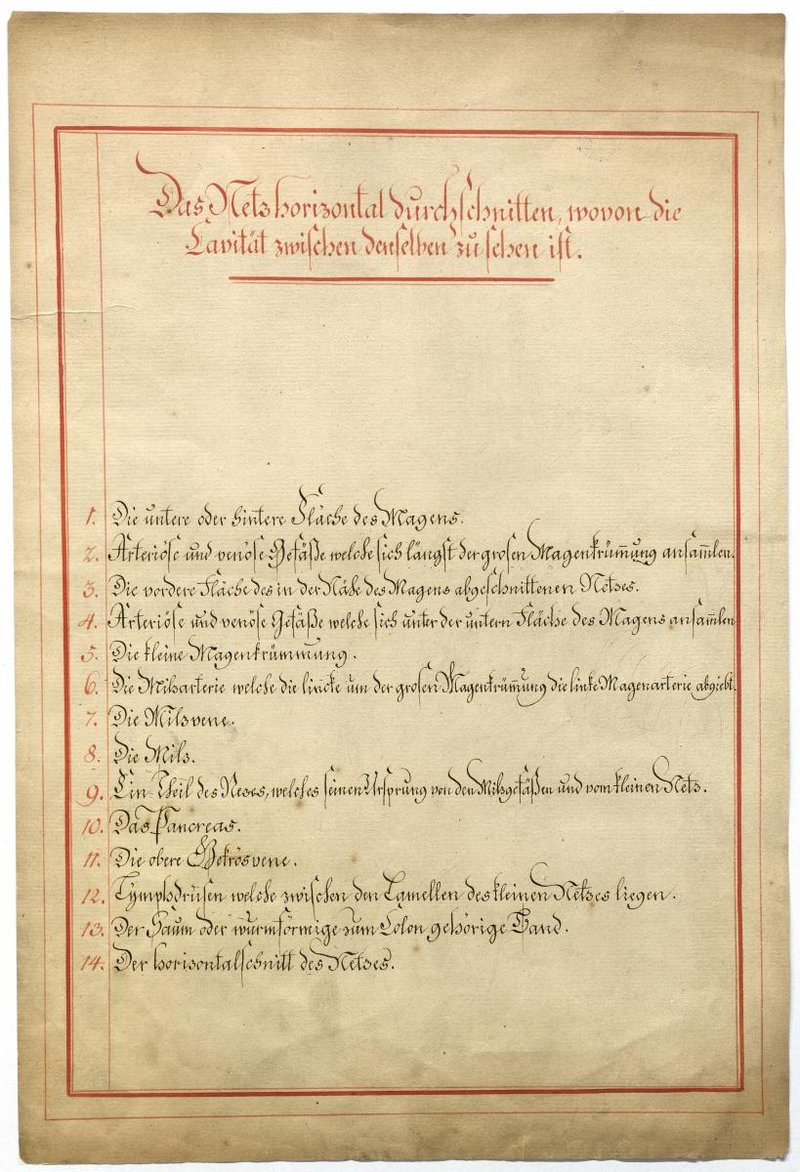 Das Netz horizontal durchschnitten, wovon die
Cavität zwischen denselben zu sehen ist.
1. Die untere oder hintere Fläche des Magens.
2. Arteriöse und venöse Gefäße welche sich längst der grosen Magenkrüm̅ung ansam̅len.
3. Die vordere Fläche des in der Nähe des Magens abgeschnittenen Netzes.
4. Arteriöse und venöse Gefäße welche sich unter der untern Fläche des Magens ansam̅len
5. Die kleine Magenkrümmung.
6. Die Milzarterie welche die lincke um der grosen Magenkrüm̅ung die linke Magenarterie abgiebt.
7. Die Milzvene.
8. Die Milz.
9. Ein Theil des Nezes, welches seinen Ursprung von den Milzgefäßen und vom kleinen Netz.
10. Das Pancreas.
11. Die obere Gekrösvene.
12. Lymphdrüsen welche zwischen den Lamellen des kleinen Netzes liegen.
13. Der Saum oder wurmförmige zum Colon gehörige Band.
14. Der horizontalschnitt des Netzes.